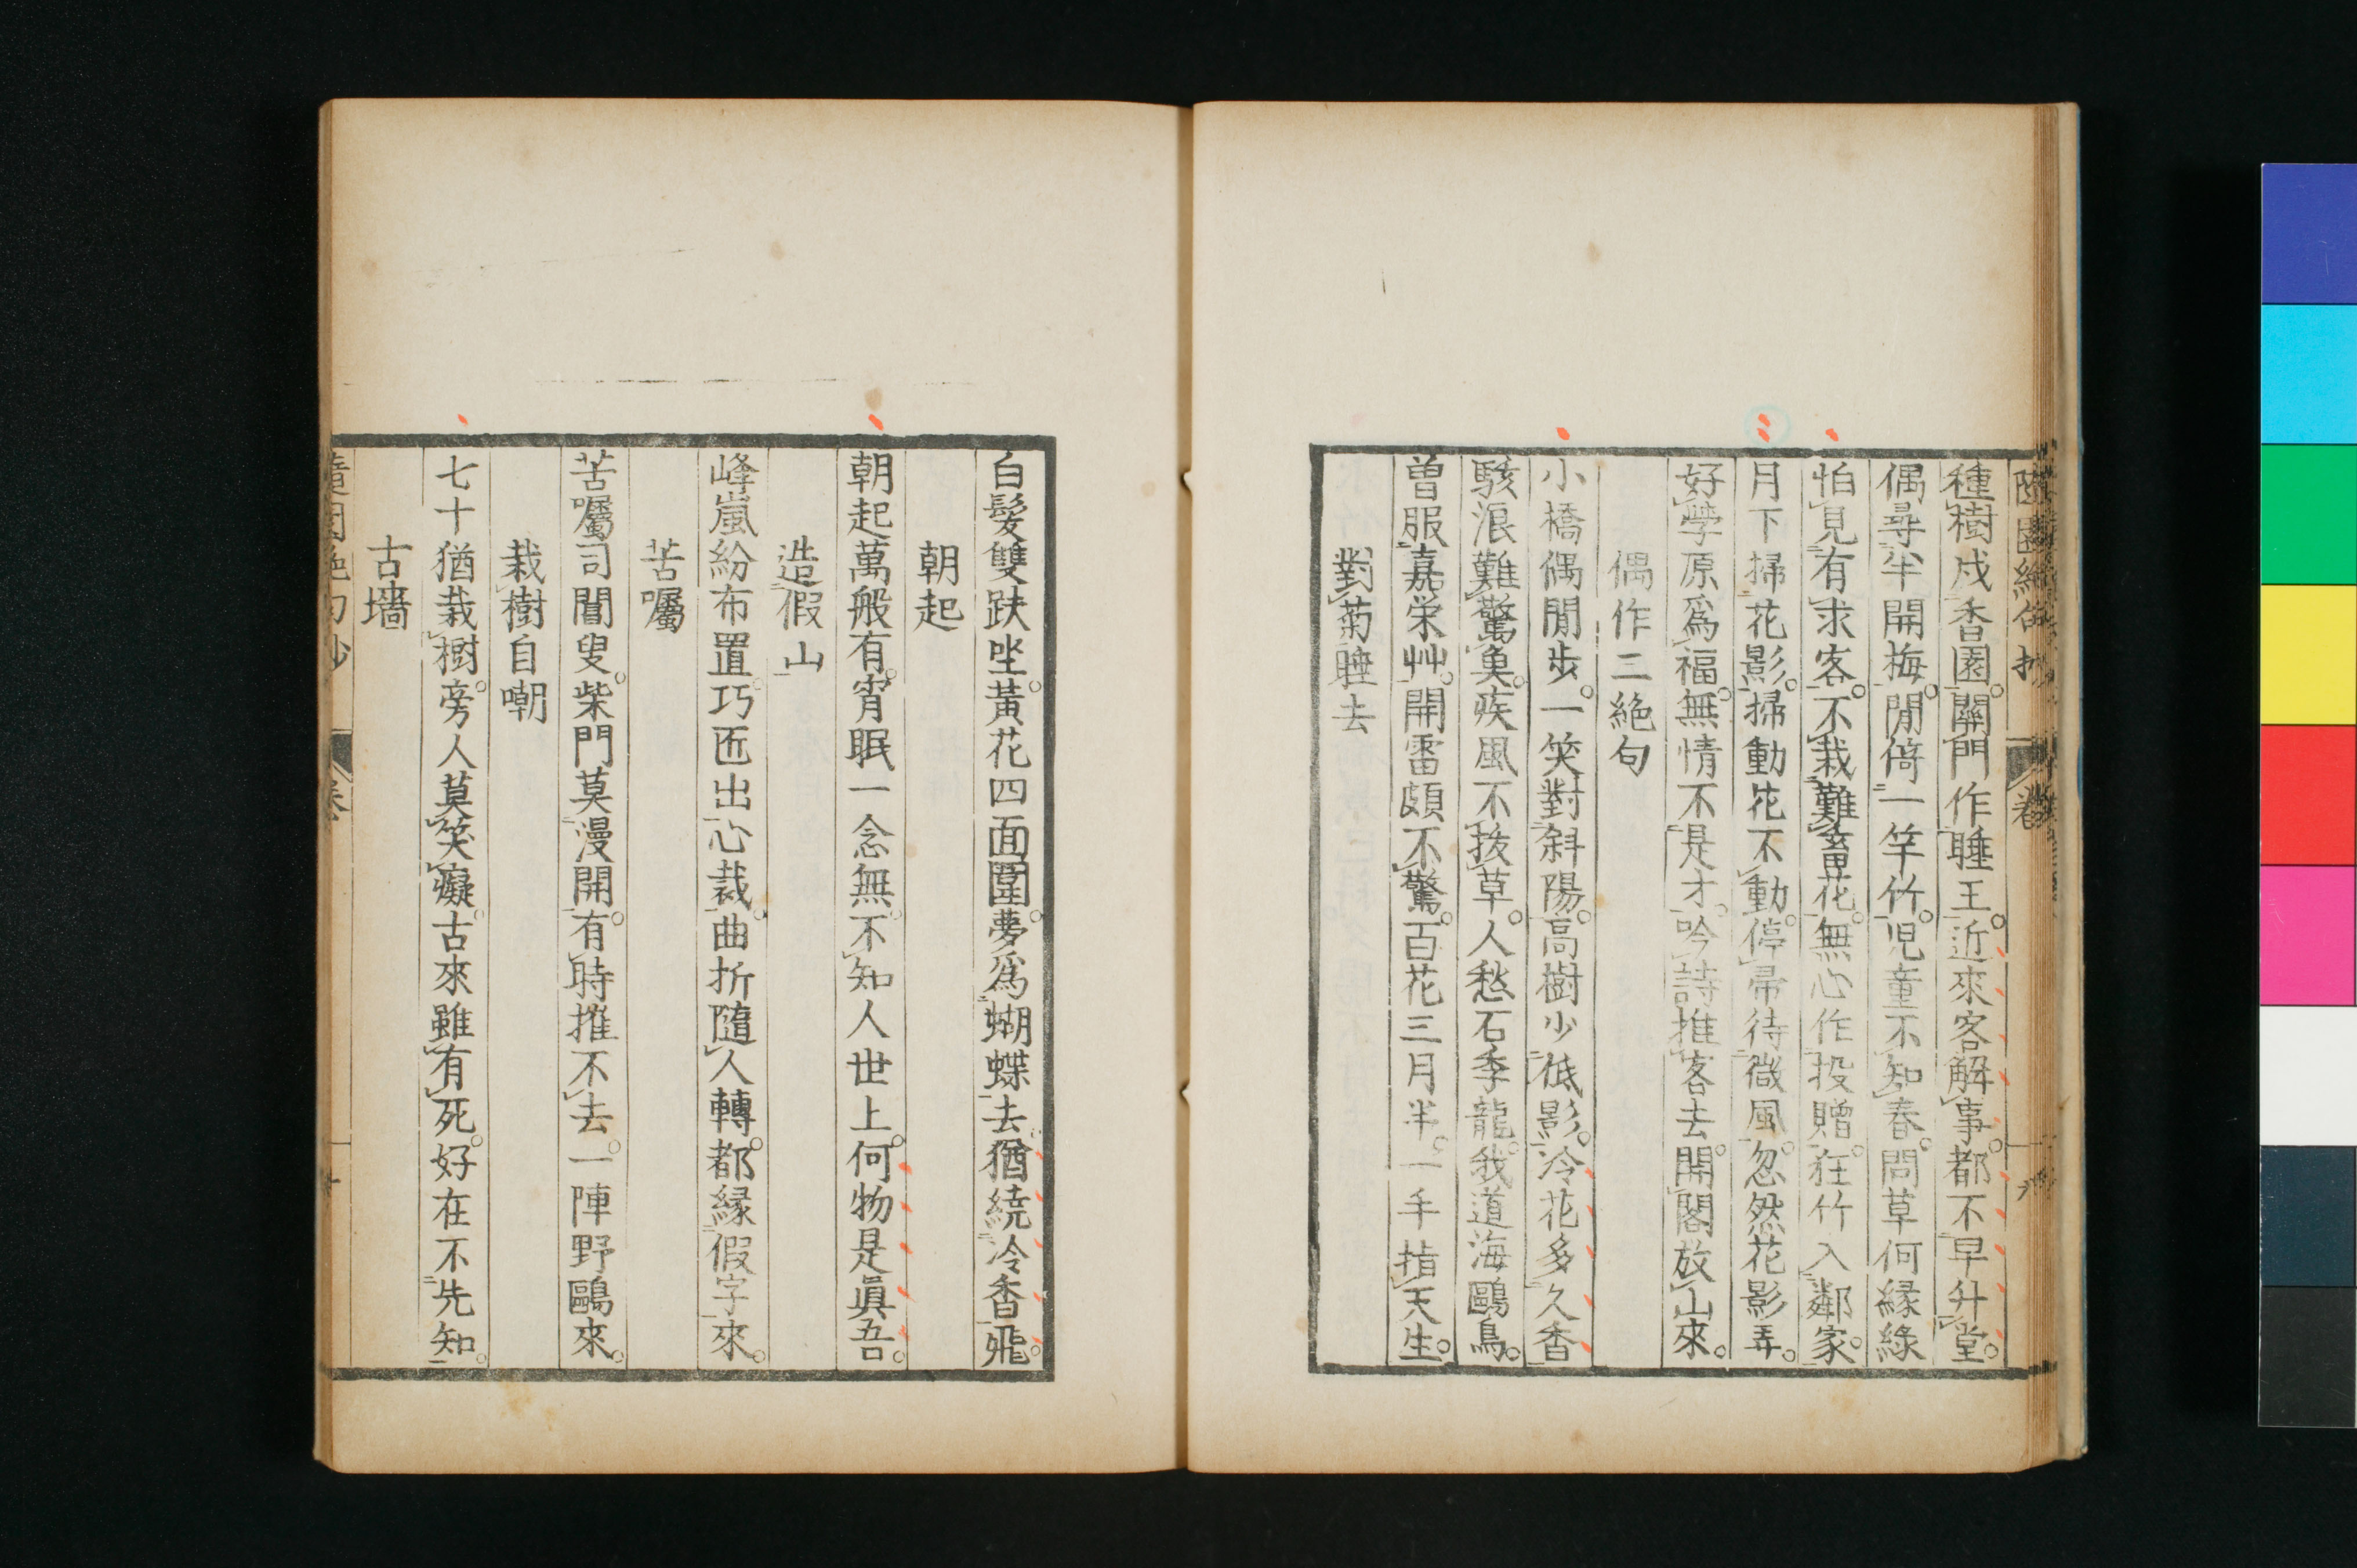 隨園絶句抄 卷 九
種樹成香園。關門作睡王。近來客解事。都不早升堂。
偶尋半開梅。閒倚一竿竹。児童不知春。問草何縁綠
怕見有求客。不栽難畜花。無心作投贈。在竹入鄰家。
月下掃花影。掃動花不動。停帚待微風。忽然花影弄。
好學原爲福。無情不是才。吟詩推客去。開閣放山來。
偶作二絶句
小橋偶閒歩。一笑對斜陽。高樹少低影。冷花多久香
駭浪難驚魚。疾風不拔草。人愁石季龍。我道海鷗鳥。
曽服嘉栄艸。開雷頗不驚。百花三月半。一手指天生。
對菊睡去
白髮雙趺坐。黃花四面圍。夢爲蝴蝶去。猶繞冷香飛。
朝起
朝起萬般有。宵眠一念無。不知人世上。何物是眞吾。
造假山
峰嵐紛布置。巧匠出心裁。曲折隨人轉。都縁假字來。
苦囑
苦囑司閽叟。柴門莫漫開。有時摧不去。一陣野鷗來。
栽樹自嘲
七十猶栽樹。旁人莫笑癡。古來雖有死。好在不先知。
古墻
隨園絶句抄 卷 十